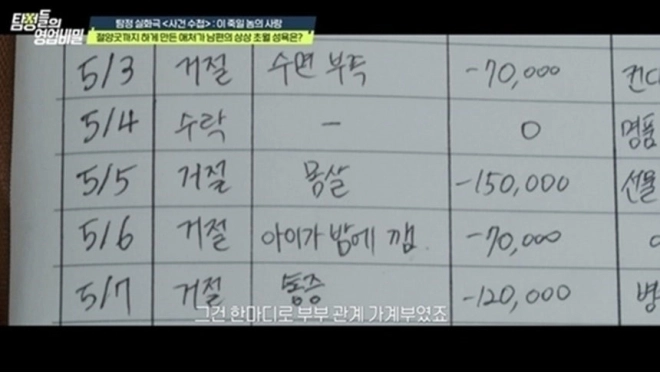 탐정들의 영업비밀
탐정 실화극 <사건 수첩> : 이 죽일 놈의 사랑
절양굿까지 하게 만든 애처가 남편의 상상 초월 성욕은?
5/3 거절 수면 부족 -70,000
5/4 수락 - 0 명품
5/5 거절 몸살 -150,000 선물
5/6 거절 아이가 밤에 깸. -70,000
5/7 거절 통증 -120,000
그건 한마디로 부부 관계 가계부였죠